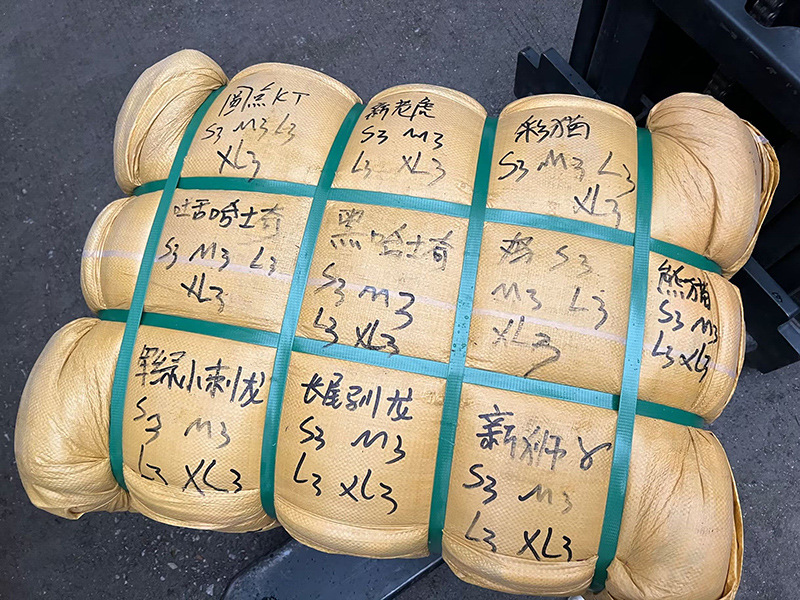 圆点KT
S3 M3 L3
XL3
新老虎
S3 M3
L3 XL3
彩猫
S3 M3 L3
XL3
吐舌哈士奇
S3 M3 L3
XL3
黑哈士奇
S3 M3
L3 XL3
S3
M3 L3
XL3
熊猫
S3 M3
L3 XL3
小刺龙
S3 M3
L3 XL3
长尾 龙
S3 M3
L3 XL3
新狮
S3 M3
L3 XL3